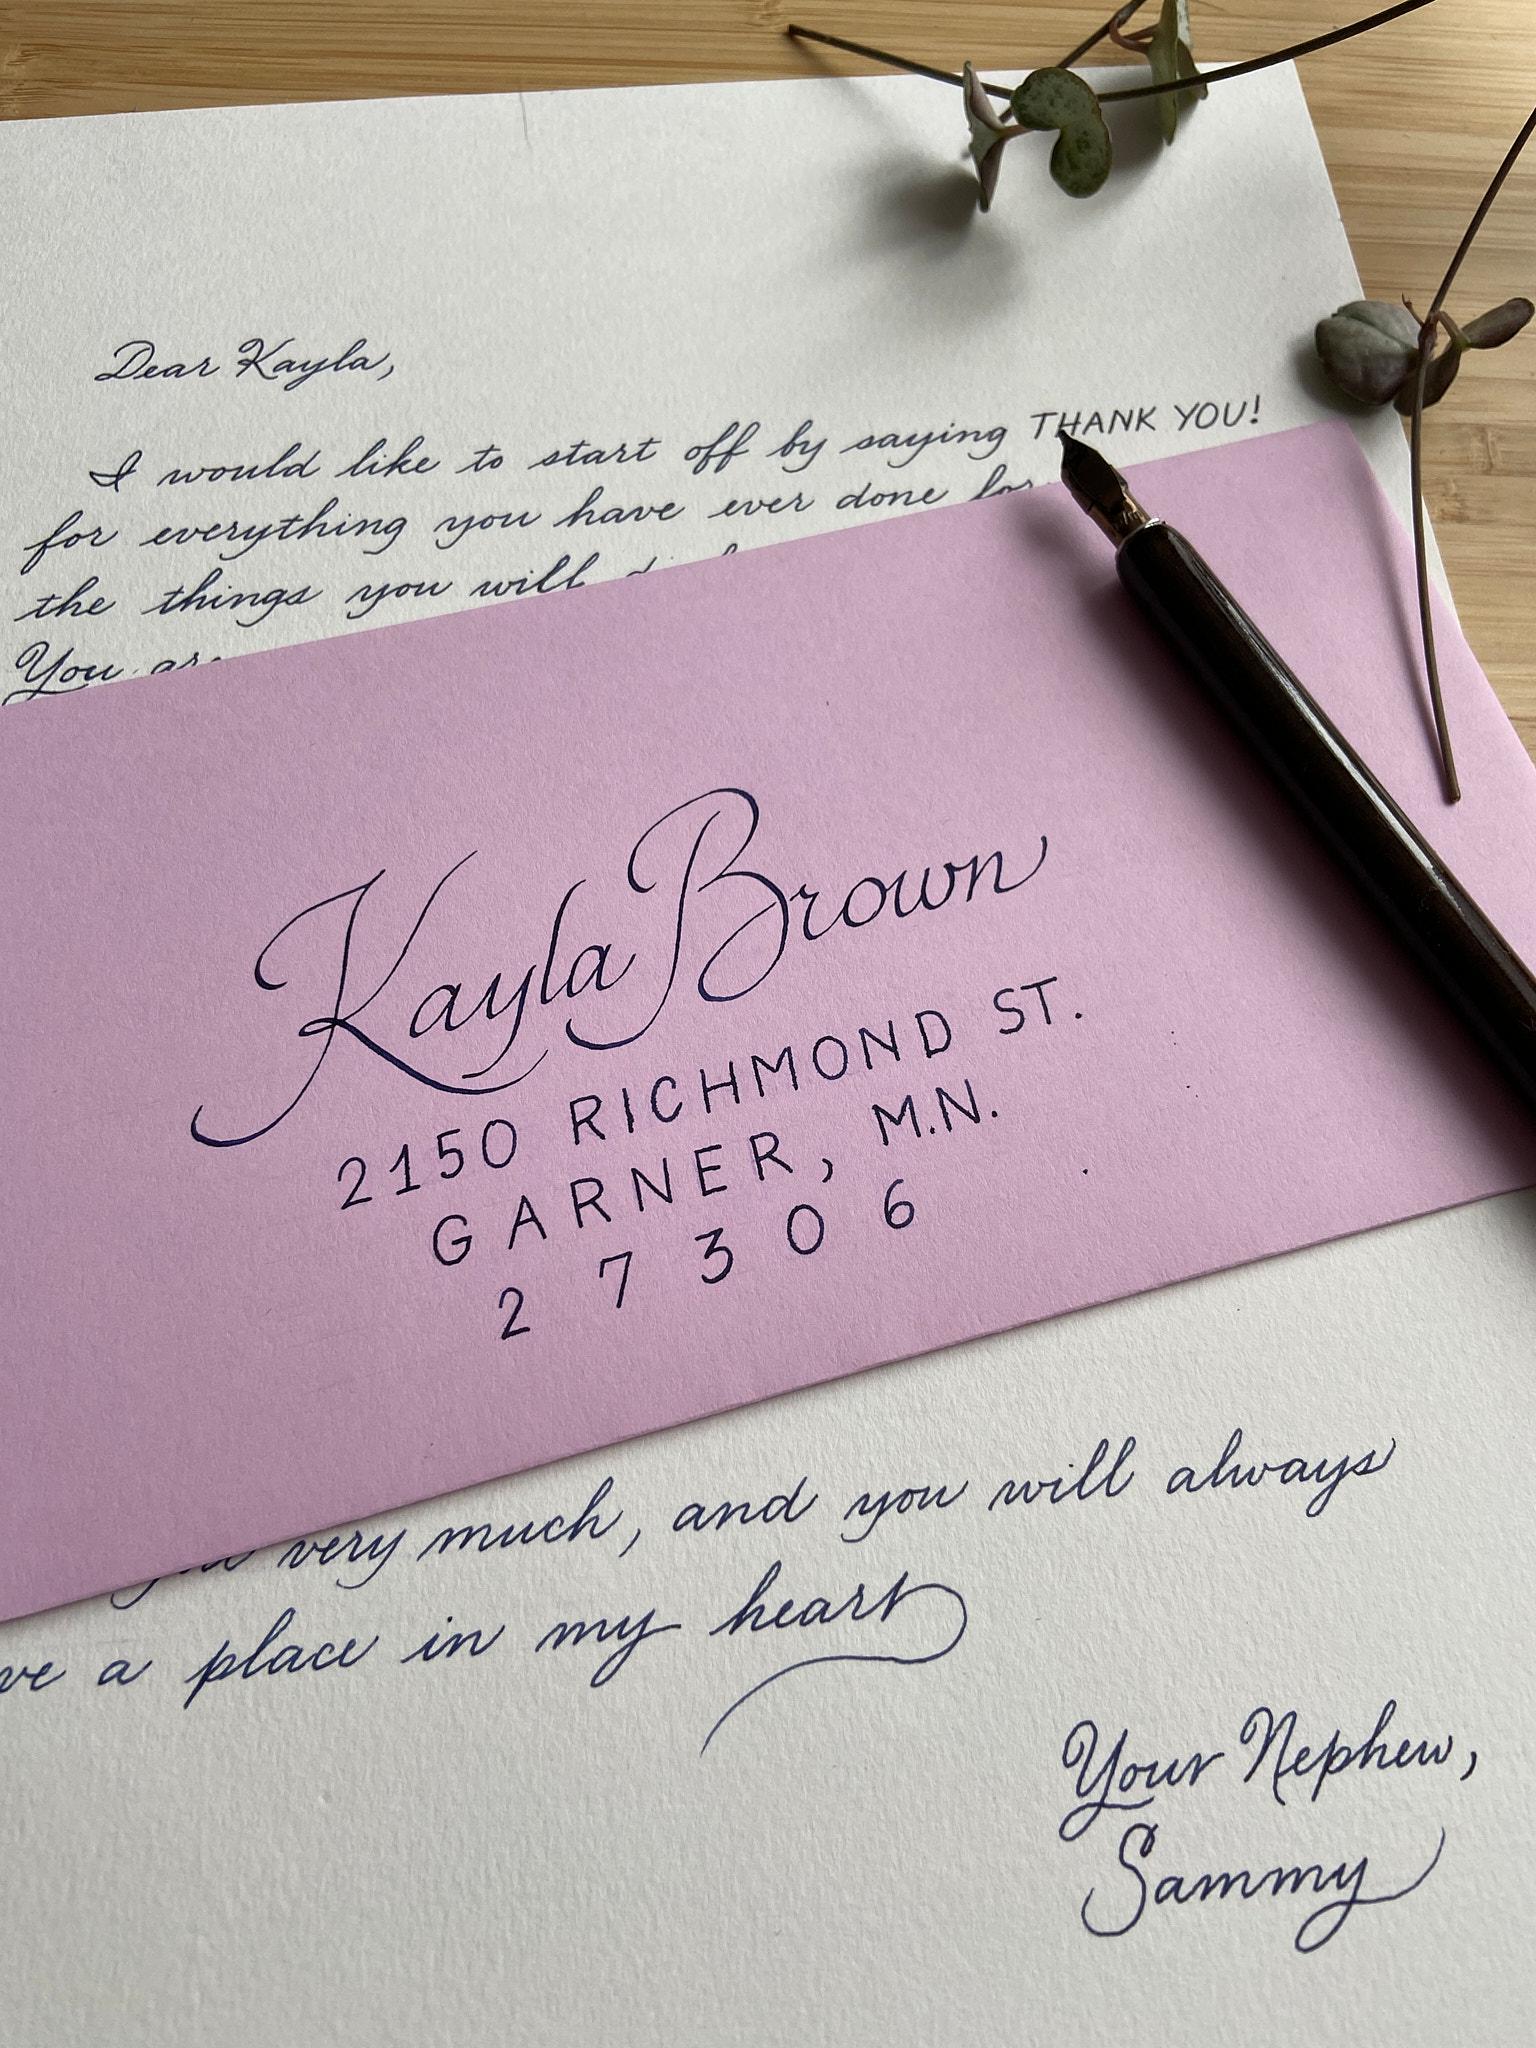 Dear Kayla,
I would like to start off by saying THANK YOU!
for everything you have ever done for
the things you will
You are
Kayla Brown
2150 RICHMOND ST.
GARNER, M.N.
2 7 3 0 6
very much, and you will always
a place in my heart
Your Nephew,
Sammy